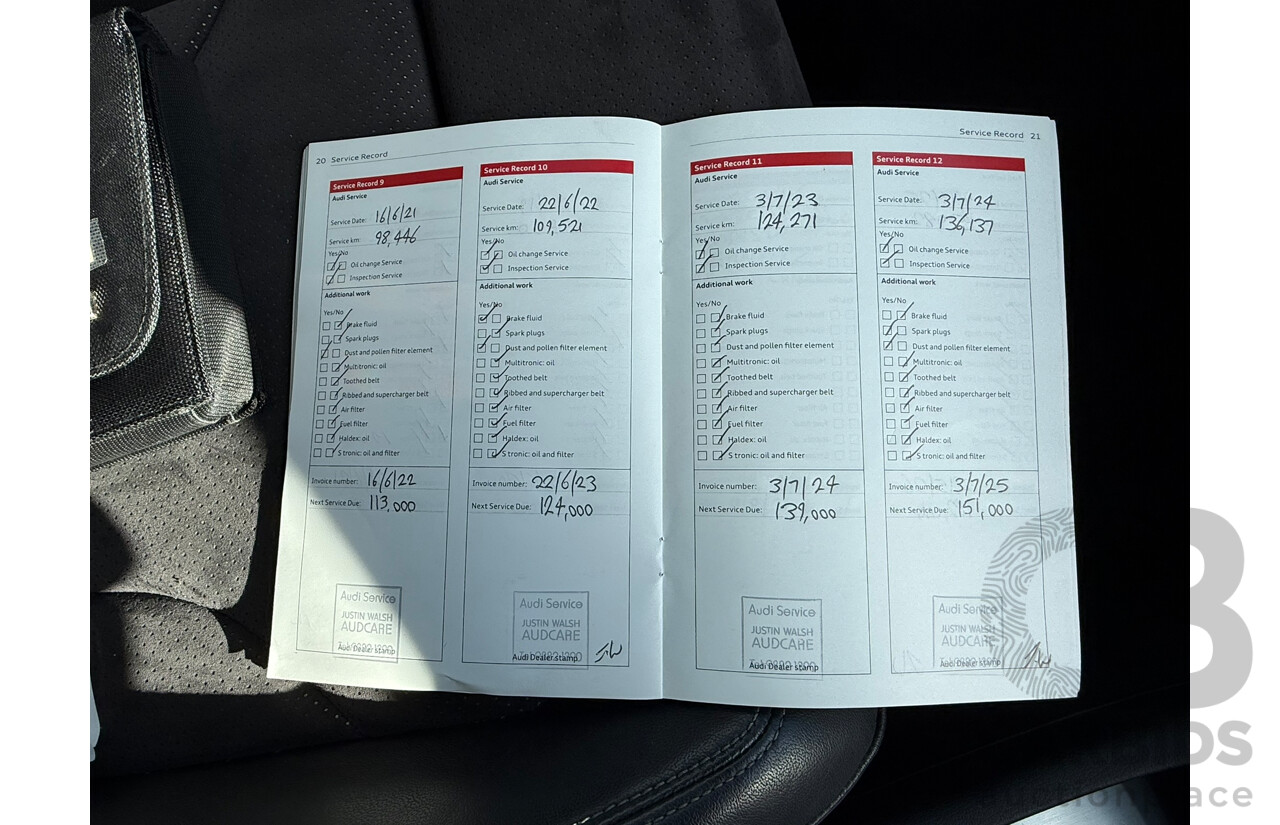 20 Service Record
Service Record 9
Audi Service
Service Date: 16/6/21
Service km: 98,446
Yes/No
Oil change Service
Inspection Service
Additional work
Yes/No
Brake fluid
Spark plugs
Dust and pollen filter element
Multitronic: oil
Toothed belt
Ribbed and supercharger belt
Air filter
Fuel filter
Haldex: oil
S tronic: oil and filter
Invoice number: 16/6/22
Next Service Due: 113,000
Audi Service
JUSTIN WALSH
AUDCARE
Audi Dealer stamp
Service Record 10
Audi Service
Service Date: 22/6/22
Service km: 109,521
Yes/No
Oil change Service
Inspection Service
Additional work
Yes/No
Brake fluid
Spark plugs
Dust and pollen filter element
Multitronic: oil
Toothed belt
Ribbed and supercharger belt
Air filter
Fuel filter
Haldex: oil
S tronic: oil and filter
Invoice number: 22/6/23
Next Service Due: 124,000
Audi Service
JUSTIN WALSH
AUDCARE
Audi Dealer stamp
JW
Service Record 21
Service Record 11
Audi Service
Service Date: 3/7/23
Service km: 124,271
Yes/No
Oil change Service
Inspection Service
Additional work
Yes/No
Brake fluid
Spark plugs
Dust and pollen filter element
Multitronic: oil
Toothed belt
Ribbed and supercharger belt
Air filter
Fuel filter
Haldex: oil
S tronic: oil and filter
Invoice number: 3/7/24
Next Service Due: 139,000
Audi Service
JUSTIN WALSH
AUDCARE
Audi Dealer stamp
Service Record 12
Audi Service
Service Date: 3/7/24
Service km: 136,137
Yes/No
Oil change Service
Inspection Service
Additional work
Yes/No
Brake fluid
Spark plugs
Dust and pollen filter element
Multitronic: oil
Toothed belt
Ribbed and supercharger belt
Air filter
Fuel filter
Haldex: oil
S tronic: oil and filter
Invoice number: 3/7/25
Next Service Due: 151,000
Audi Service
JUSTIN WALSH
AUDCARE
Audi Dealer stamp
JW